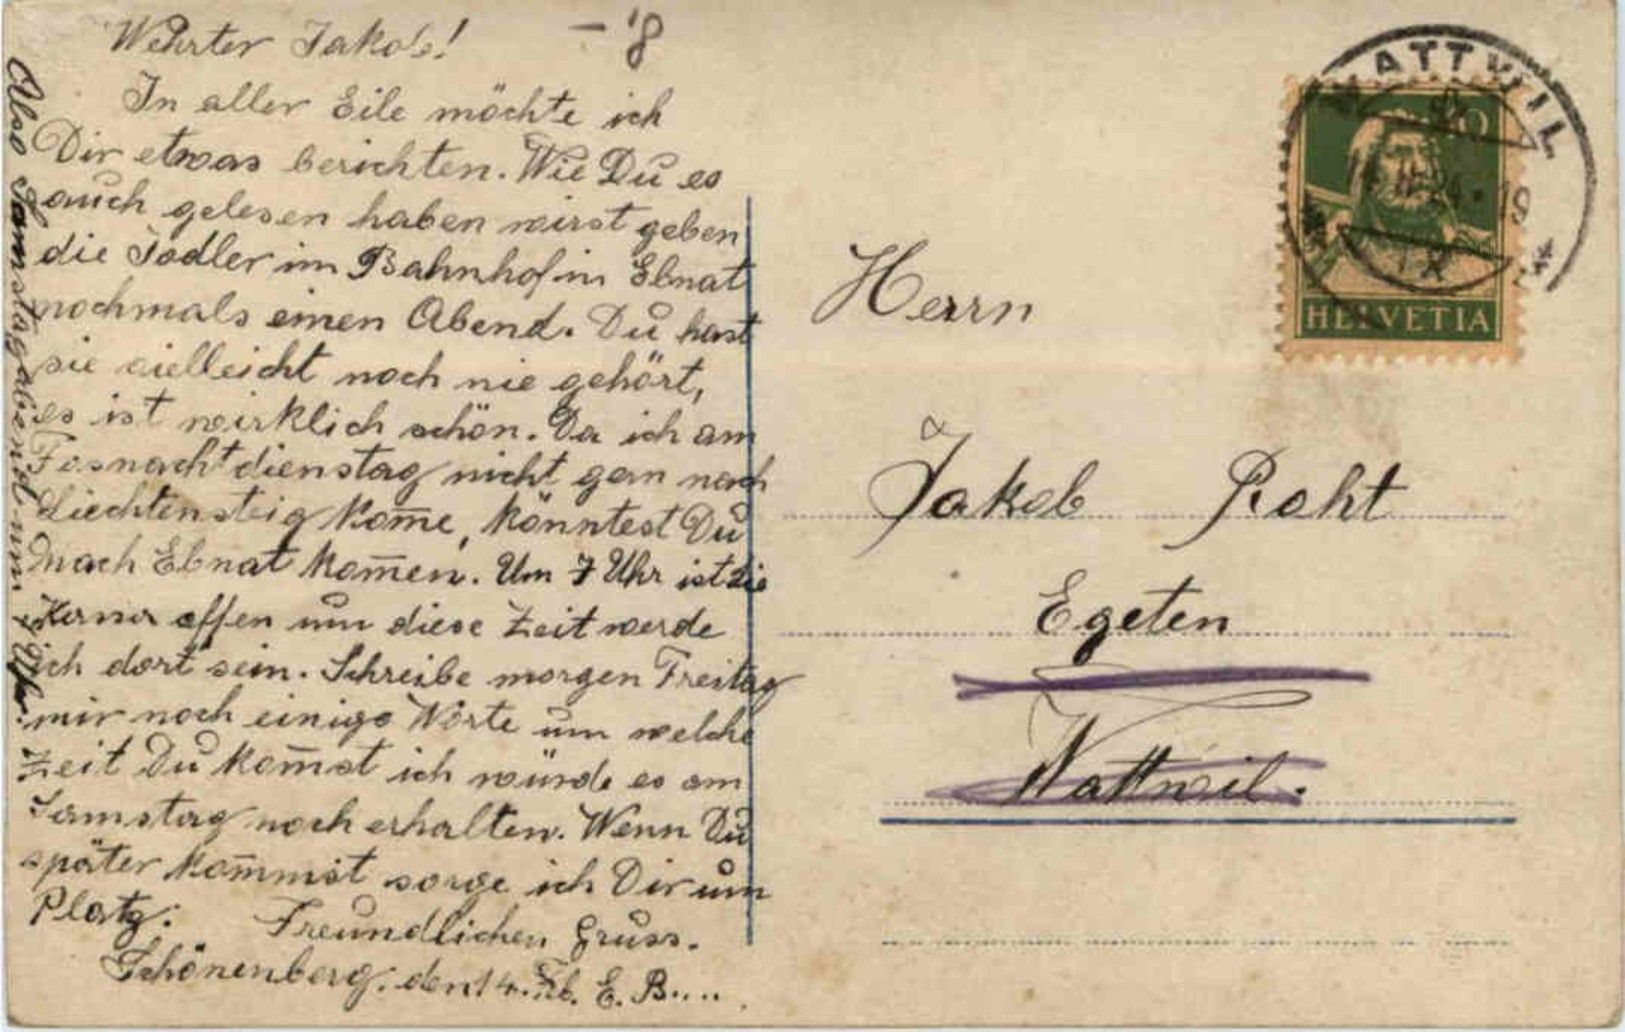 Wehrter Jakob!
In aller Eile möchte ich
Dir etwas berichten. Wie Du es
auch gelesen haben wirst geben
die Jodler im Bahnhof in Ebnat
nochmals einen Abend. Du hast
sie vielleicht noch nie gehört,
es ist wirklich schön. Da ich am
Fasnachtdienstag nicht gern nach
Liechtensteig kom̄e, könntest Du
nach Ebnat kom̄en. Um 7 Uhr ist die
offen um diese Zeit werde
ich dort sein. Schreibe morgen Freitag
mir noch einige Worte um welche
Zeit Du kom̄st ich würde es am
Samstag noch erhalten. Wenn Du
später kom̄mst sorge ich Dir um
Platz. Freundlichen Gruss.
Schönenberg, den 14. Feb. E. B....
Also Samstagabend um 7 Uhr.
- 18
WATTWIL
10
HELVETIA
Herrn
Jakob Roht
Egeten
Wattwil.